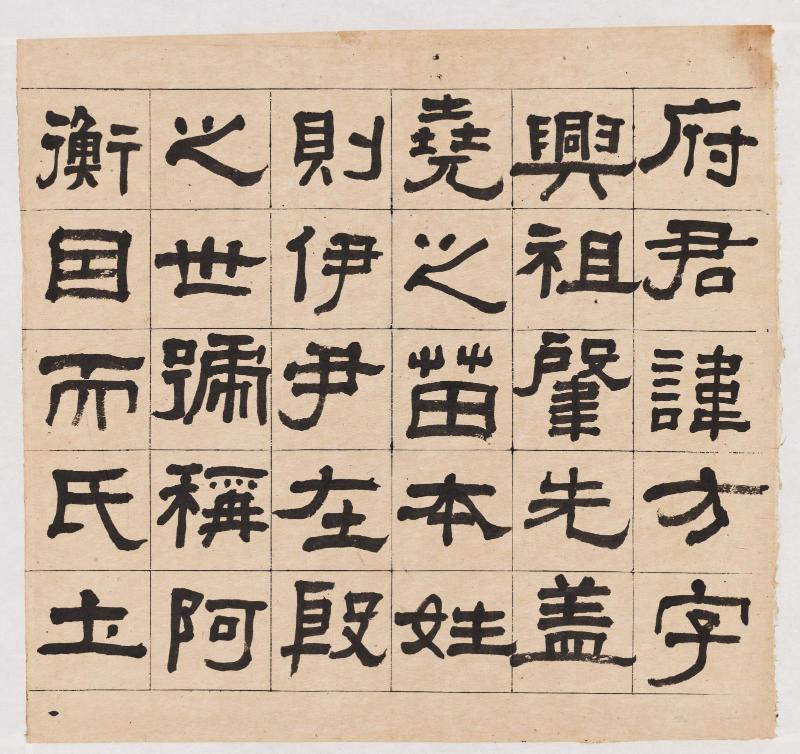 府君諱方字
興祖肇先盖
堯之苗本姓
則伊尹在殷
之世號稱阿
衡囙而氏圡